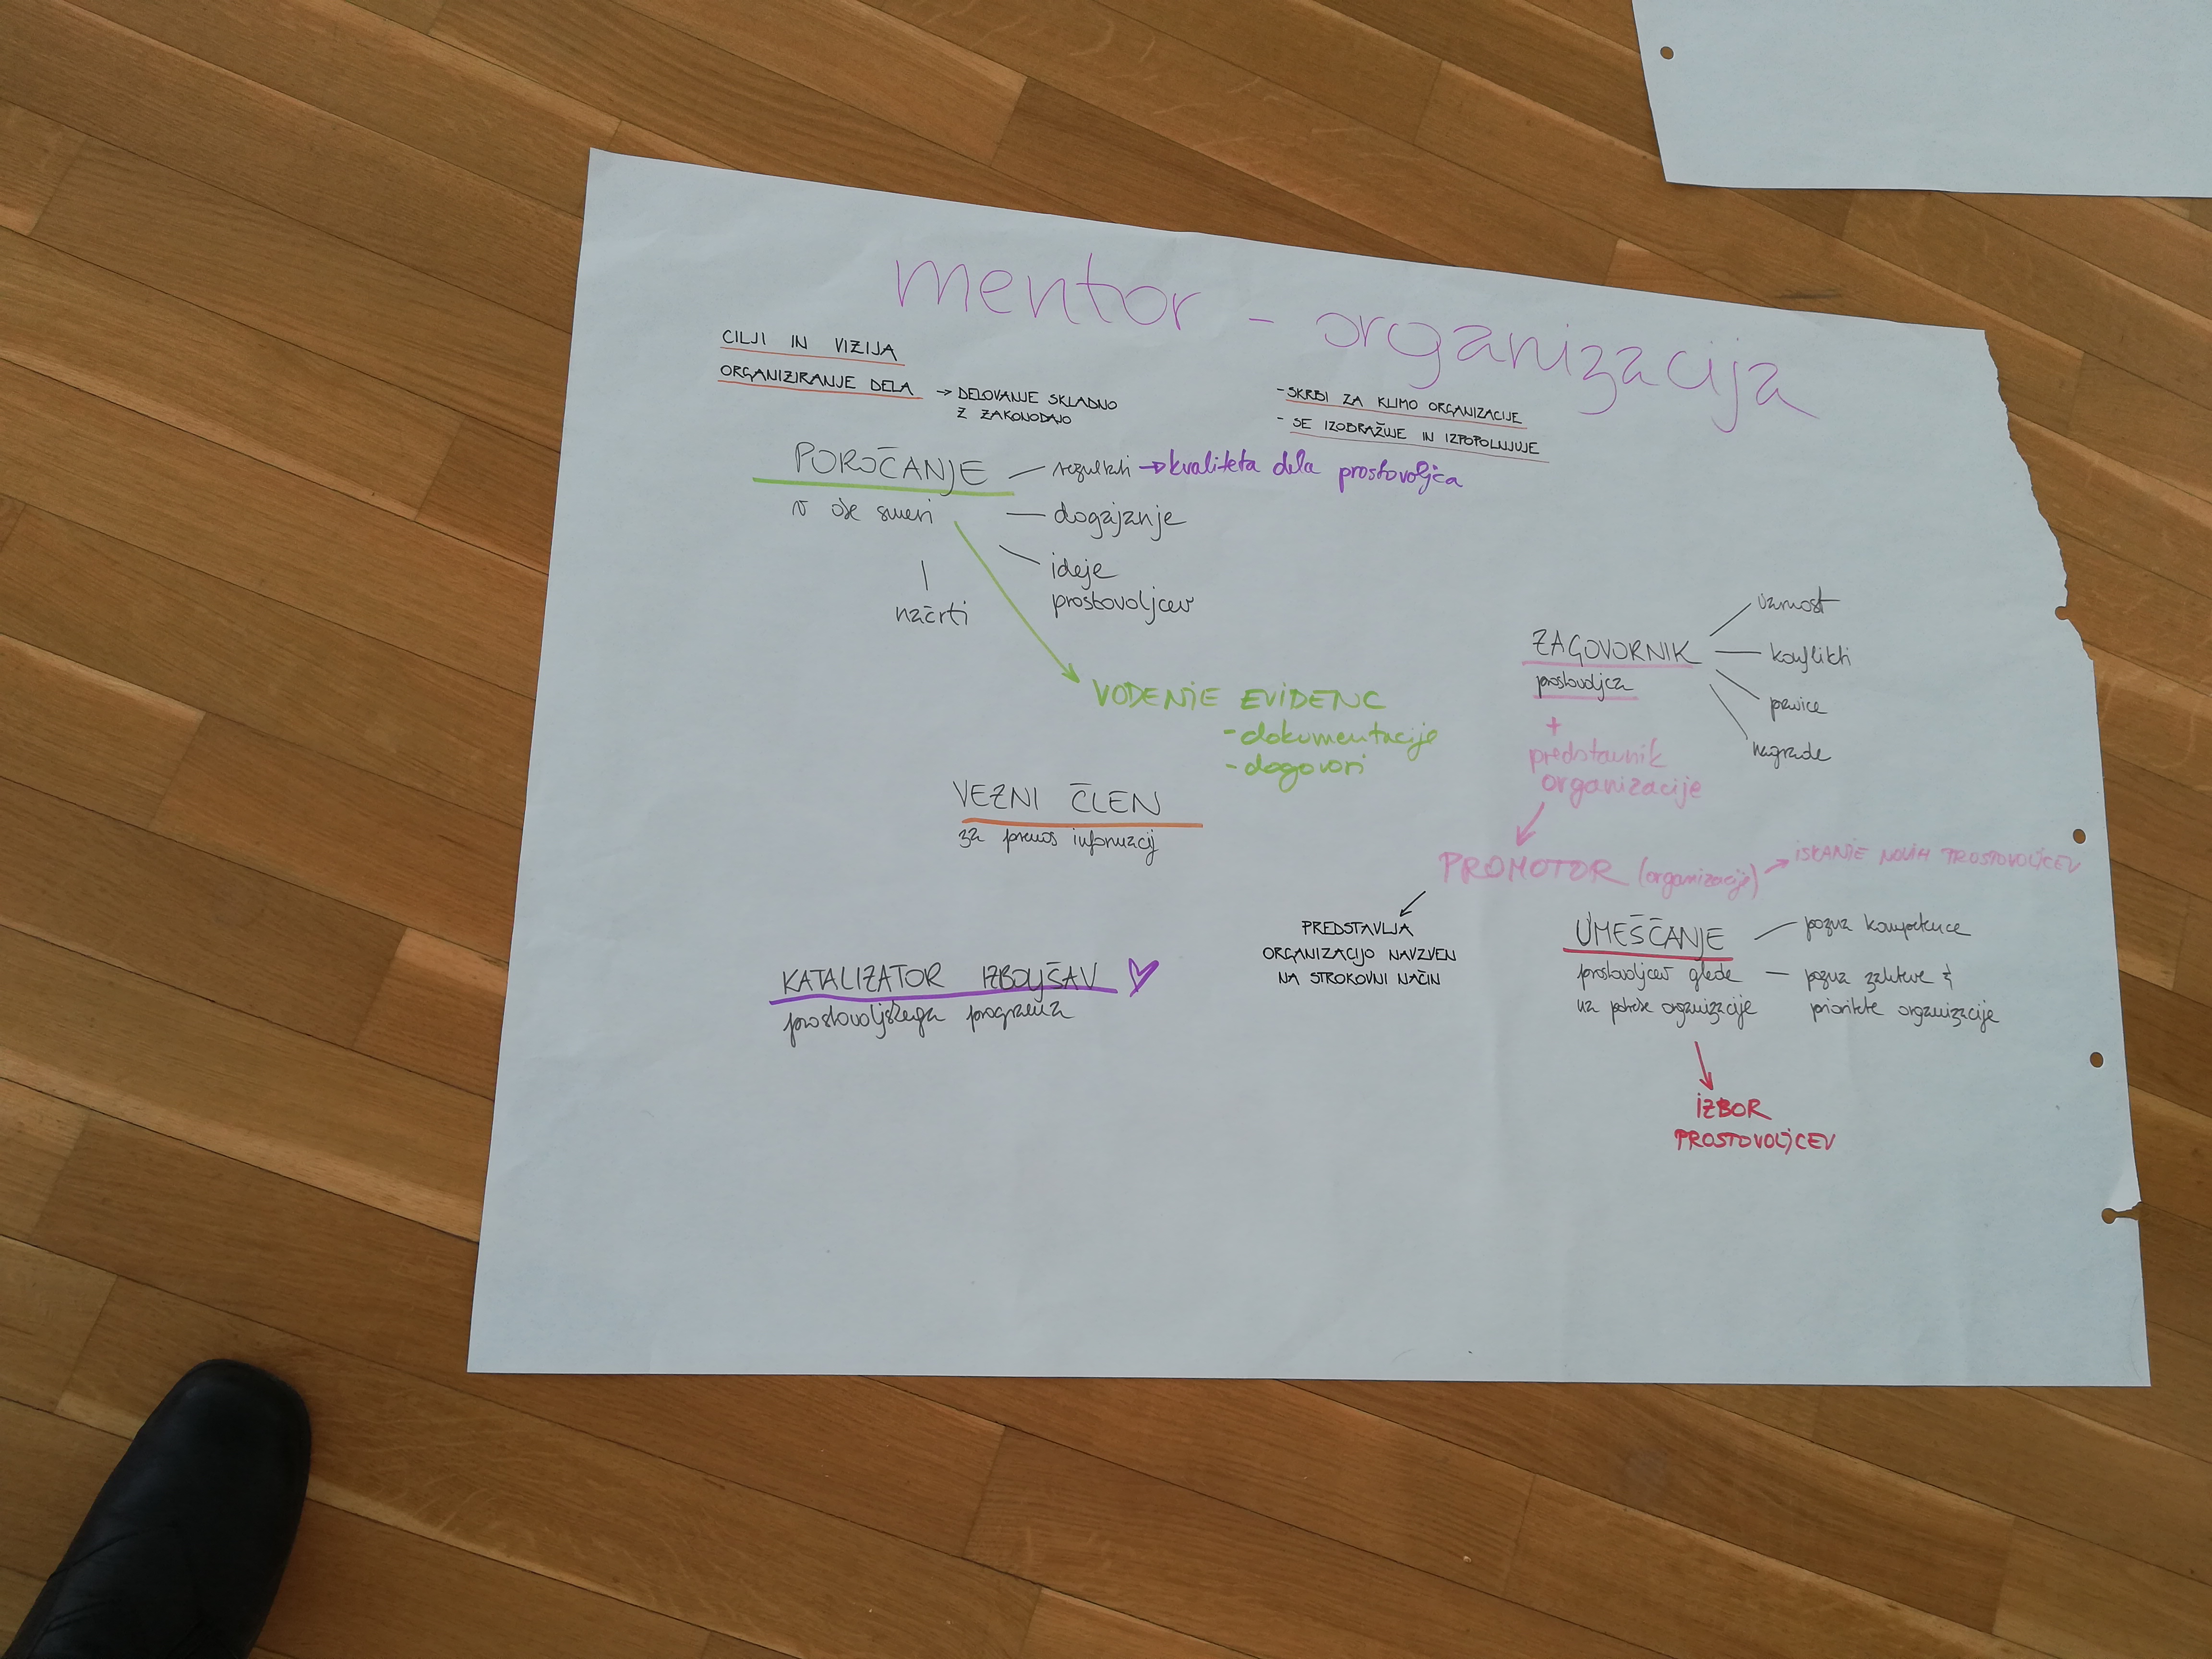 mentor - organizacija
CILJI IN VIZIJA
ORGANIZIRANJE DELA → DELOVANJE SKLADNO
Z ZAKONODAJO
- SKRBI ZA KLIMO ORGANIZACIJE
- SE IZOBRAŽUJE IN IZPOPOLNJUJE
POROČANJE
v obe smeri
rezultati → kvaliteta dela prostovoljca
dogajanje
ideje
prostovoljcev
načrti
VODENJE EVIDENC
- dokumentacije
- dogovori
ZAGOVORNIK
prostovoljca
varnost
konflikti
pravice
nagrade
+
predstavnik
organizacije
PROMOTOR (organizacije) → ISKANJE NOVIH PROSTOVOLJCEV
PREDSTAVLJA
ORGANIZACIJO NAVZVEN
NA STROKOVNI NAČIN
VEZNI ČLEN
za prenos informacij
KATALIZATOR IZBOLJŠAV
prostovoljskega programa
UMEŠČANJE
prostovoljcev glede
na potrebe organizacije
pozna kompetence
pozna zahteve &
prioritete organizacije
IZBOR
PROSTOVOLJCEV